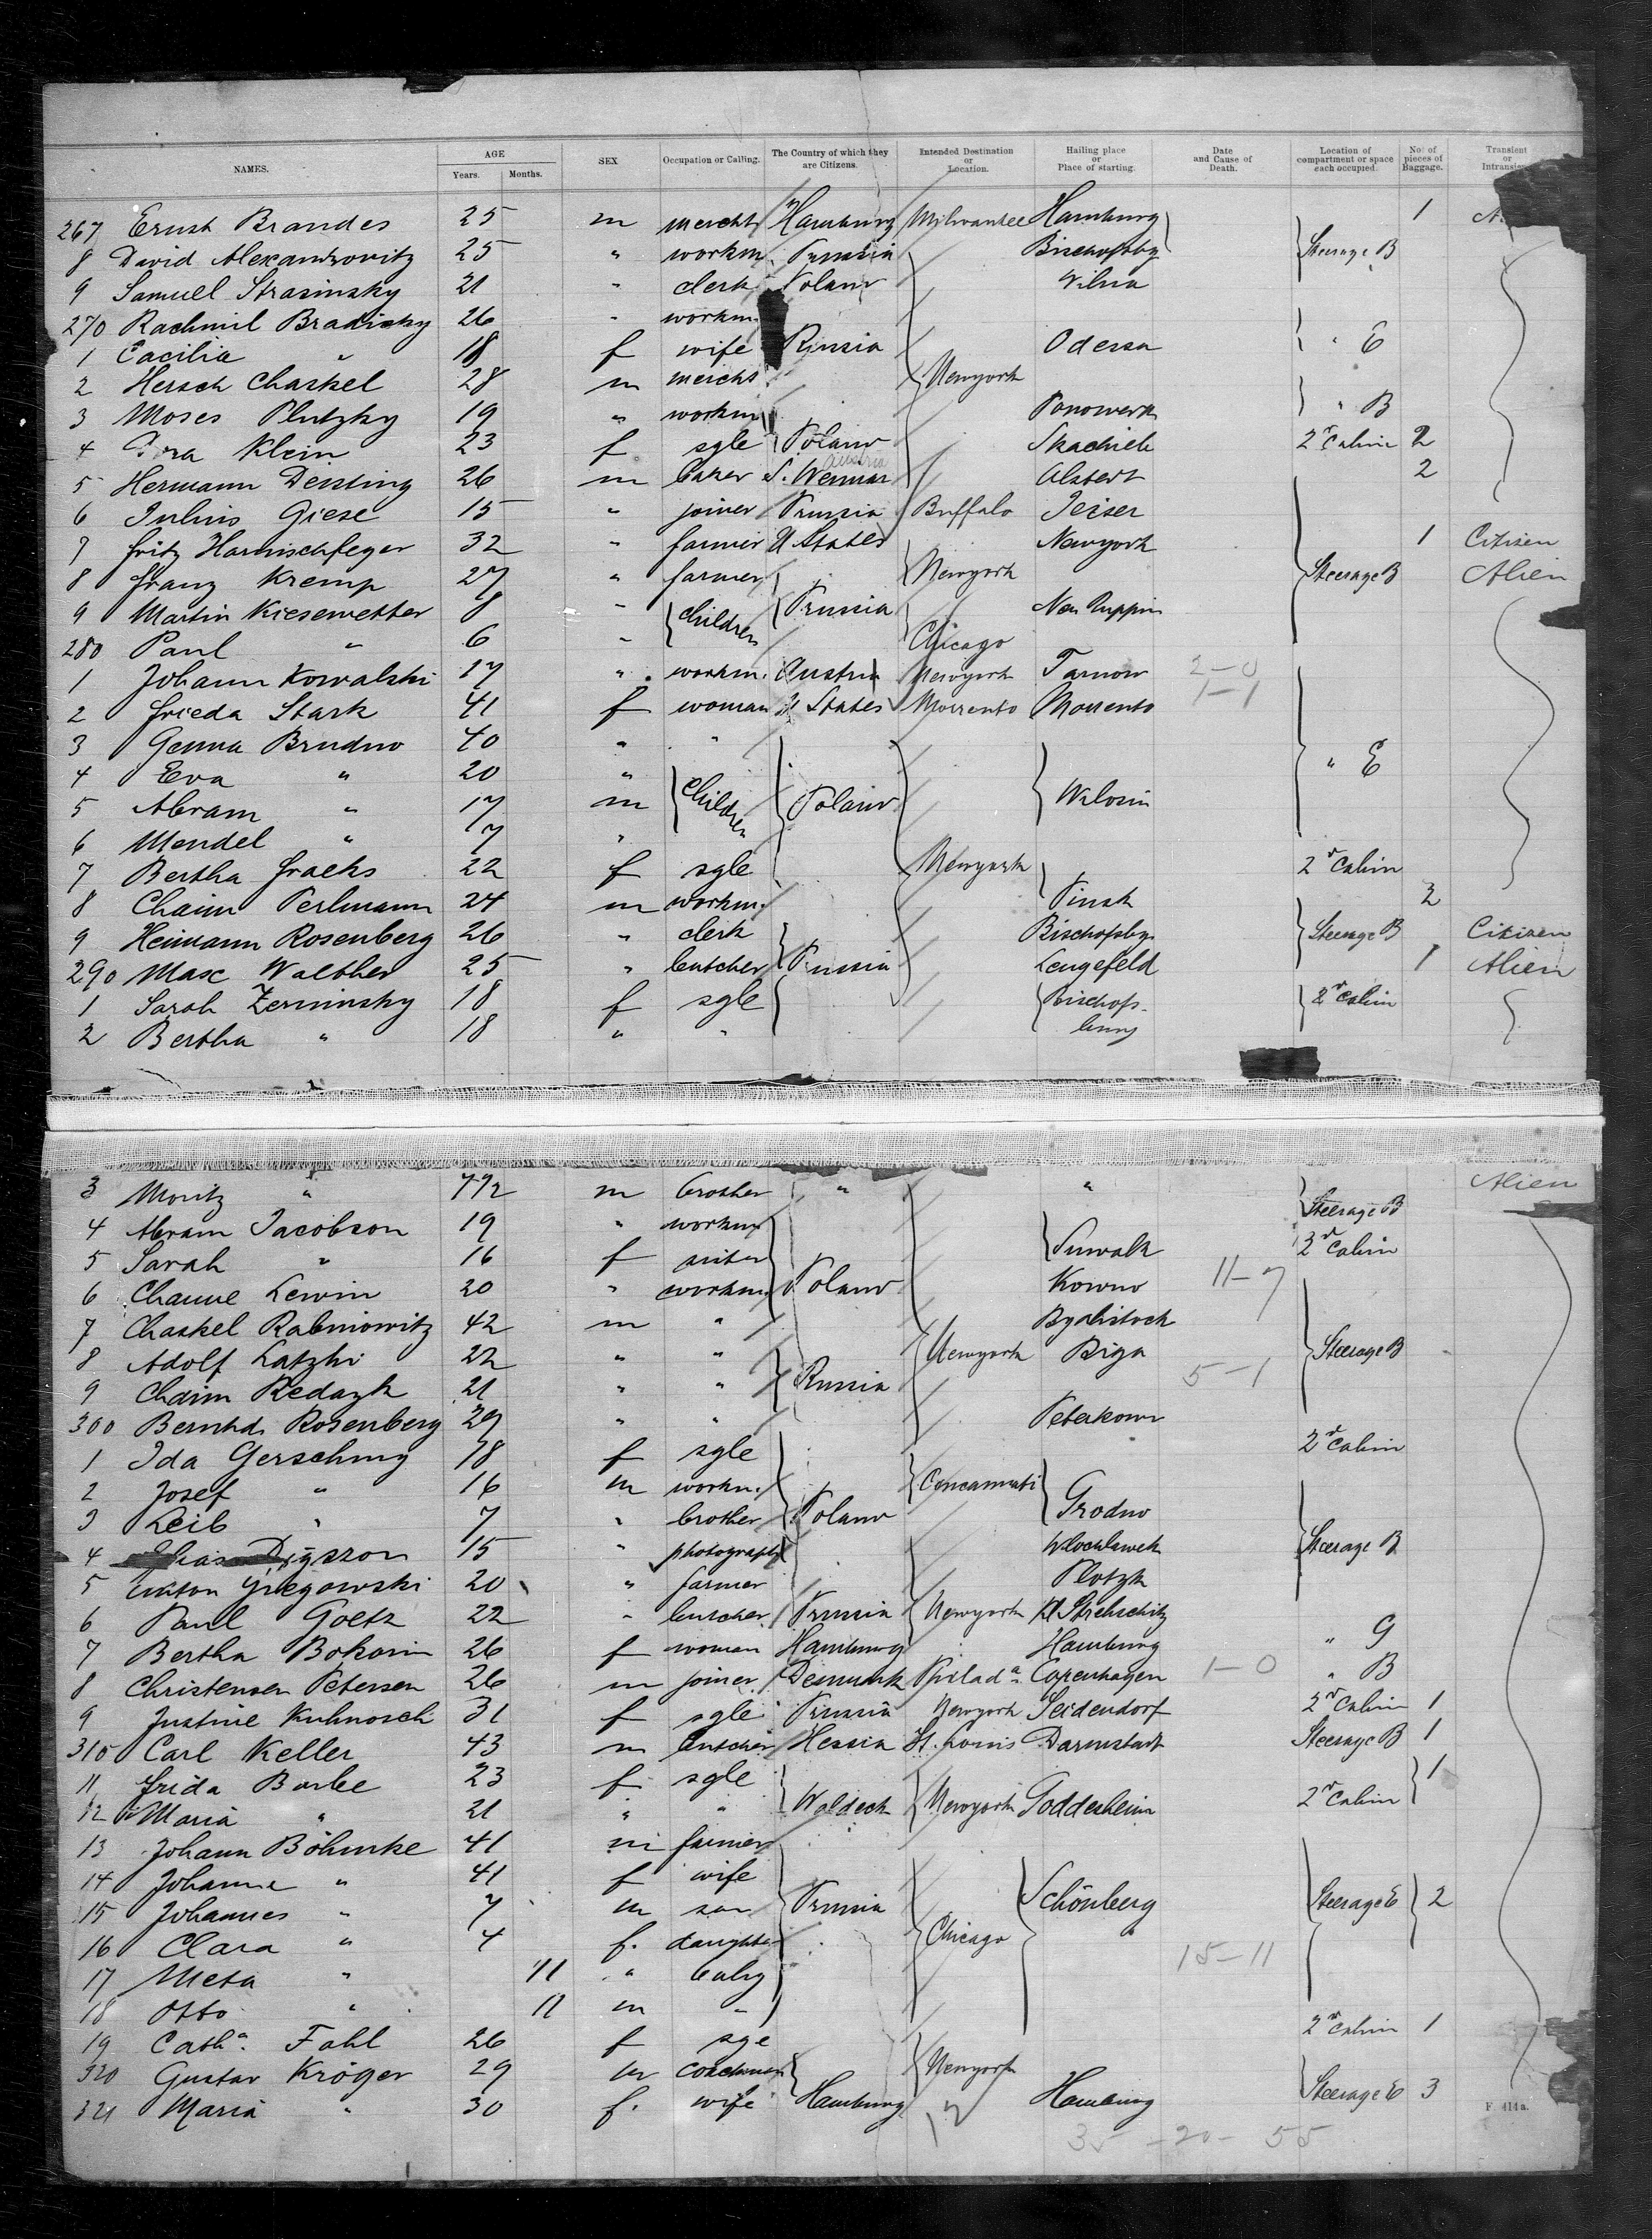 NAMES. AGE Years. Months. SEX Occupation or Calling. The Country of which they are Citizens. Intended Destination or Location. Hailing place or Place of starting. Date and Cause of Death. Location of compartment or space each occupied. No: of pieces of Baggage. Transient or
267 Ernst Brandes 25 m mercht Hamburg Milwaukee Hamburg 1
8 David Alexandrovitz 25 " workm. Prussia Bischofsbg Steerage B
9 Samuel Strasinsky 21 " clerk Poland Wilna
270 Rachmil Bradisky 26 " workm.
1 Cacilia " 18 f wife Russia Odessa " E
2 Hersch Chaskel 28 m mercht Newyork
3 Moses Plutzky 19 " workm Ponowesh " B
4 Klein 23 f sgle Poland Skadvieh 2d Cabin 2
5 Hermann Deisting 26 m baker S. Weimar Austria Alstedt 2
6 Julius Giese 15 " joiner Prussia Buffalo Jeiser
7 Fritz Harnischfeger 32 " farmer U States Newyork 1 Citizen
8 Franz Kremp 27 " farmer Newyork Steerage B Alien
9 Martin Kiesewetter 8 " children Prussia Neu Ruppin
280 Paul " 6 " Chicago
1 Johann Kowalski 17 " workm. Austria Newyork Tarnow 2-0
2 Frieda Stark 41 f woman U States Morrento Morrento 1-1
3 Genna Brudno 40 " "
4 Eva " 20 " " E
5 Abram " 17 m children Poland Wilosin
6 Mendel " 7 "
7 Bertha Fraeks 22 f sgle Newyork 2d Cabin
8 Chaim Perlmann 24 m workm. Pinsk 2
9 Heimann Rosenberg 26 " clerk Bischofsbg. Steerage B Citizen
290 Max Walther 25 " butcher Prussia Lengefeld 1 Alien
1 Sarah Zerninsky 18 f sgle Bischofs- 2d Cabin
2 Bertha " 18 " " burg
3 Moritz " 7 1/2 m brother " " Alien
Steerage B
4 Abram Jacobson 19 " workm
5 Sarah " 16 f sister Suwalk 2d Cabin
6 Channe Lewin 20 " workm. Poland Kowno 11-7
7 Chaskel Rabinowitz 42 m " Byalistock
8 Adolf Latzki 22 " " Newyork Riga Steerage B
9 Chaim Kedazk 21 " " Russia 5-1
300 Bernhd. Rosenberg 29 " " Peterkown
1 Ida Gerschny 18 f sgle 2d Cabin
2 Josef " 16 m workm. Concannati
3 Leib " 7 " brother Poland Grodno
4 Elias 15 " photograph Wloclawek Steerage B
5 Anton Gregowski 20 " farmer Plotzk
6 Paul Goetz 22 " butcher Prussia Newyork Kl Strehlitz
7 Bertha Bokorin 26 f woman Hamburg Hamburg " G
8 Christensen Petersen 26 m joiner Denmark Philada. Copenhagen 1-0 " B
9 Justine Kuhnosch 31 f sgle Prussia Newyork Seidendorf 2d Cabin 1
310 Carl Keller 43 m butcher Hessia St. Louis Darmstadt Steerage B 1
11 Frida Barbe 23 f sgle 1
12 Maria " 21 " " Waldeck Newyork Goddesheim 2d Cabin
13 Johann Böhmke 41 m farmer
14 Johanna " 41 f wife
15 Johannes " 7 m son Prussia Schönberg Steerage E 2
16 Clara " 4 f. daughter Chicago
17 Meta " 11 " baby 15-11
18 Otto " 11 m "
19 Catha. Fahl 26 f sge 2d Cabin 1
320 Gustav Kröger 29 m coachman Newyork
321 Maria " 30 f. wife Hamburg Hamburg Steerage E 3
F 414a.
35 - 20 - 55